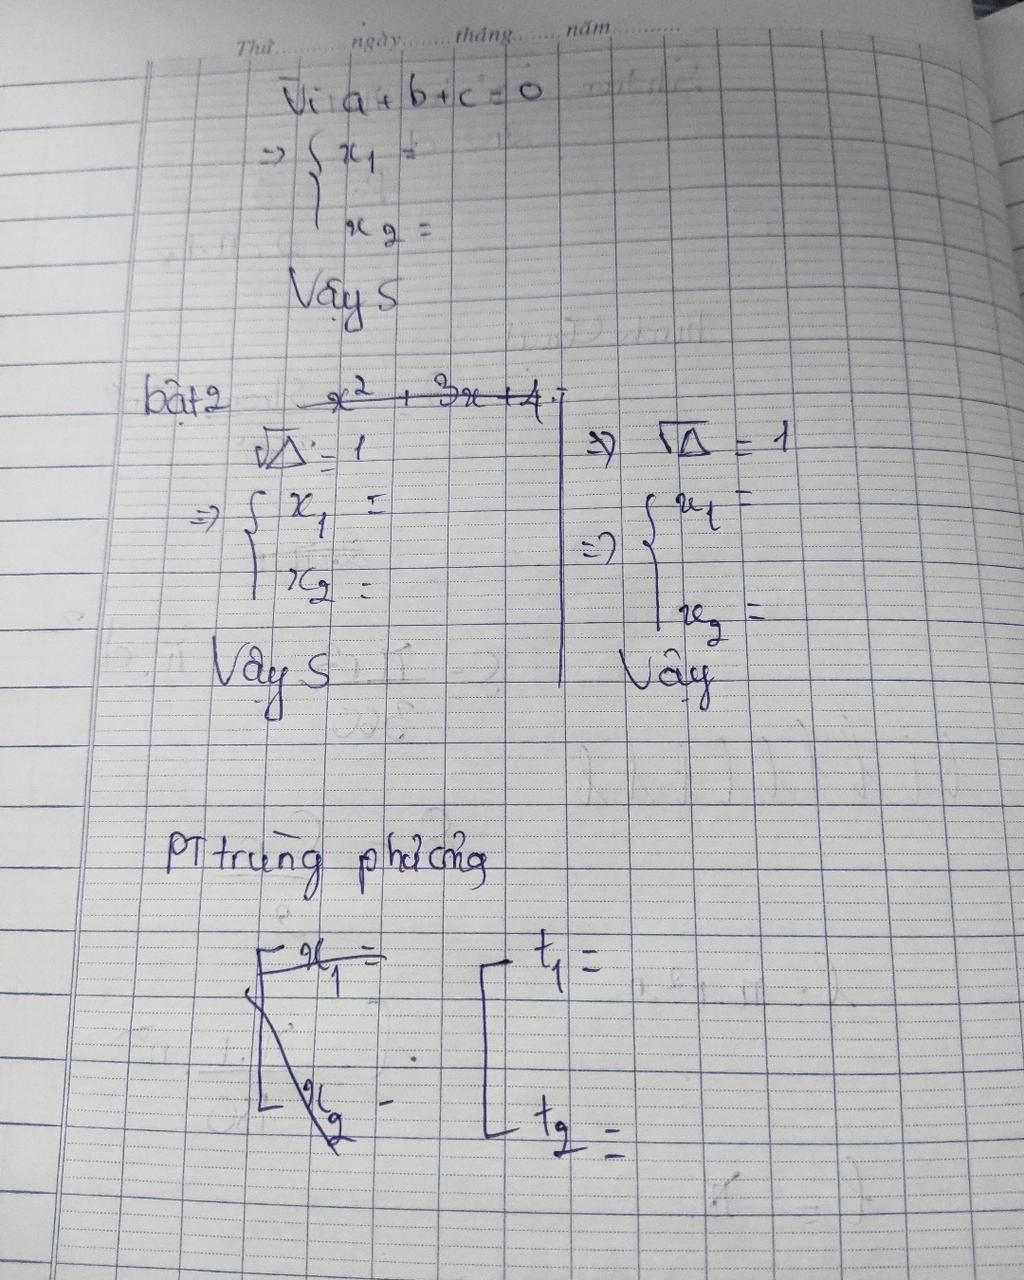 Thứ............ngày........tháng........năm............
Vì a + b + c = 0
=> { x1 =
x2 =
Vậy S
bật2 x² + 3x + 4 =
√Δ = 1
=> { x1 =
x2 =
Vậy S
=> √Δ = 1
=> { x1 =
x2 =
Vậy
PT trùng phương
[ x1 =
x2 -
[ t1 =
t2 =